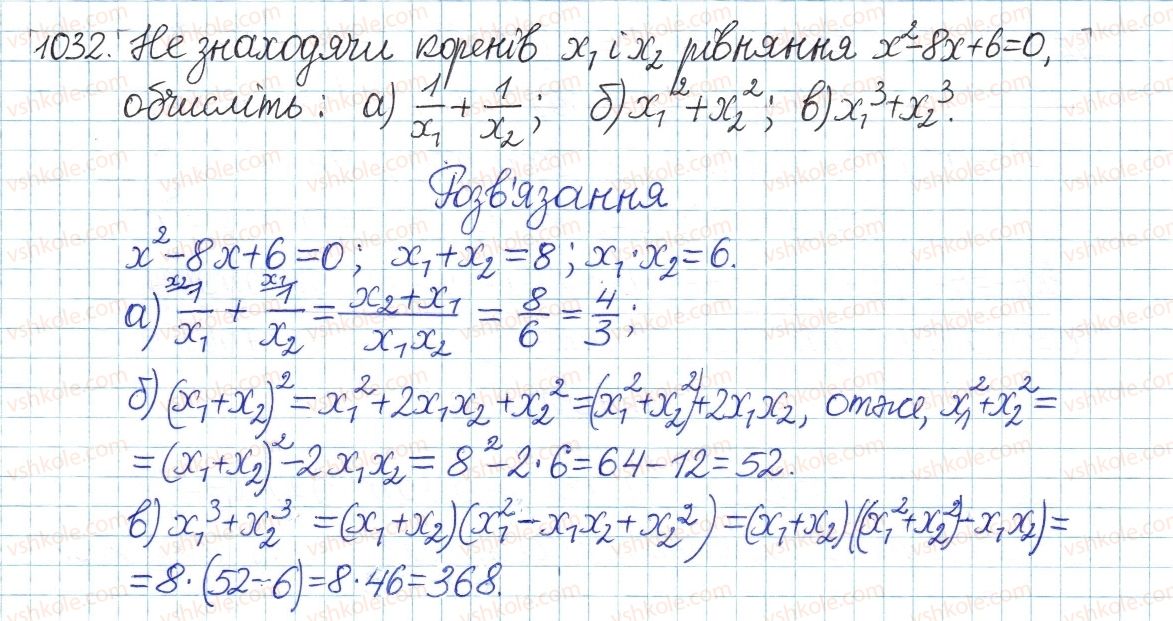 1032. Не знаходячи коренів x₁ і x₂ рівняння x²-8x+6=0,
обчисліть: а) 1/x₁ + 1/x₂; б) x₁²+x₂²; в) x₁³+x₂³.
Розв'язання
x²-8x+6=0; x₁+x₂=8; x₁·x₂=6.
а) ˣ²⁄1/x₁ + ˣ¹⁄1/x₂ = (x₂+x₁)/(x₁x₂) = 8/6 = 4/3;
б) (x₁+x₂)²=x₁²+2x₁x₂+x₂²=(x₁²+x₂²)+2x₁x₂, отже, x₁²+x₂²=
=(x₁+x₂)²-2x₁x₂=8²-2·6=64-12=52.
в) x₁³+x₂³=(x₁+x₂)(x₁²-x₁x₂+x₂²)=(x₁+x₂)((x₁²+x₂²)-x₁x₂)=
=8·(52-6)=8·46=368.